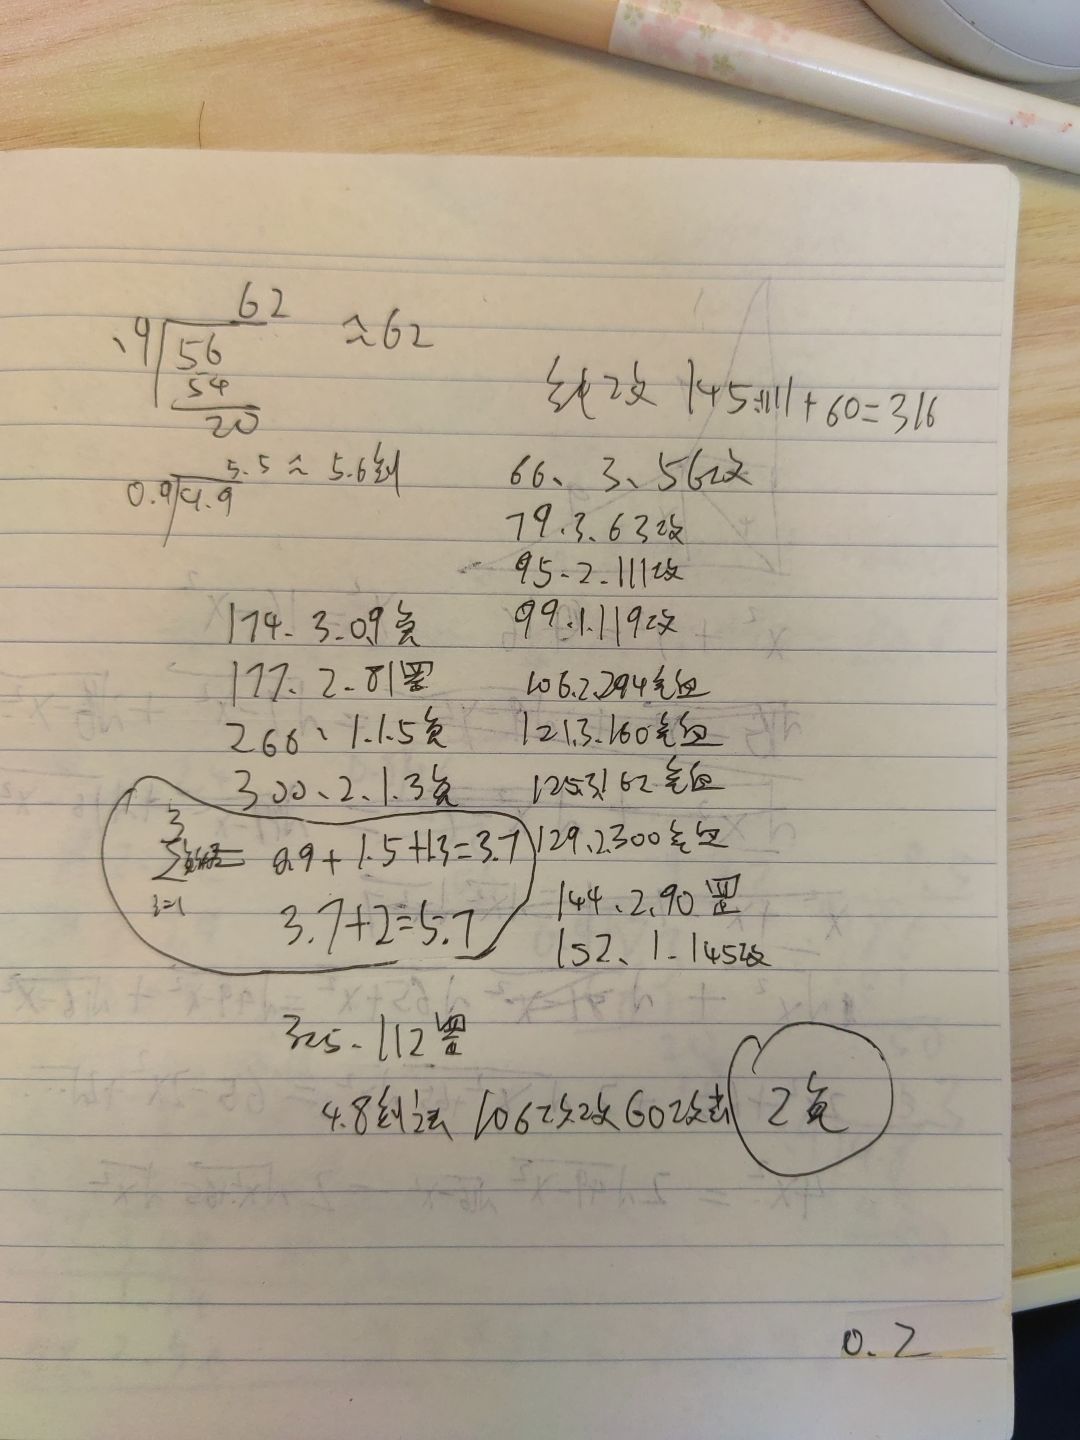 62
.9 56 ≈62
54
20
5.5 ≈ 5.6剑
0.9 4.9
纯攻 145+111+60=316
66、3、56攻
79.3.63攻
95-2-111攻
99.1.119攻
106.2.294气血
121.3.160气血
125.3.162气血
129.2.300气血
144、2.90罡
152、1-145攻
174-3-0.9负
177-2-81罡
266、1.1.5负
300、2、1.3负
3
∑
i=1
0.9+1.5+1.3=3.7
3.7+2=5.7
325-112罡
4.8剑法 106攻 60攻击 2负
0.2